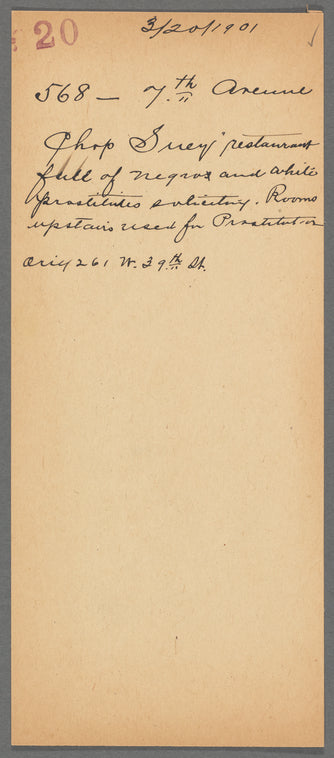 20
3/20/1901
568 — 7th Avenue
Chop Suey" restaurant
full of negros and white
prostitutes soliciting. Rooms
upstairs used for Prostitution
261 W. 39th St.